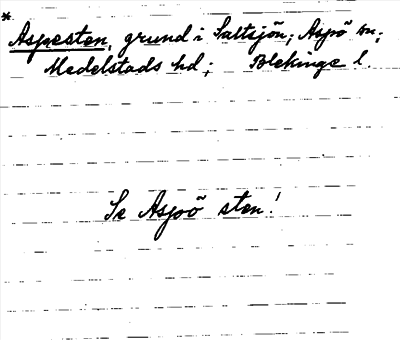 * Aspesten, grund i Saltsjön; Aspö sn;
Medelstads hd; Blekinge l.
Se Aspö sten!